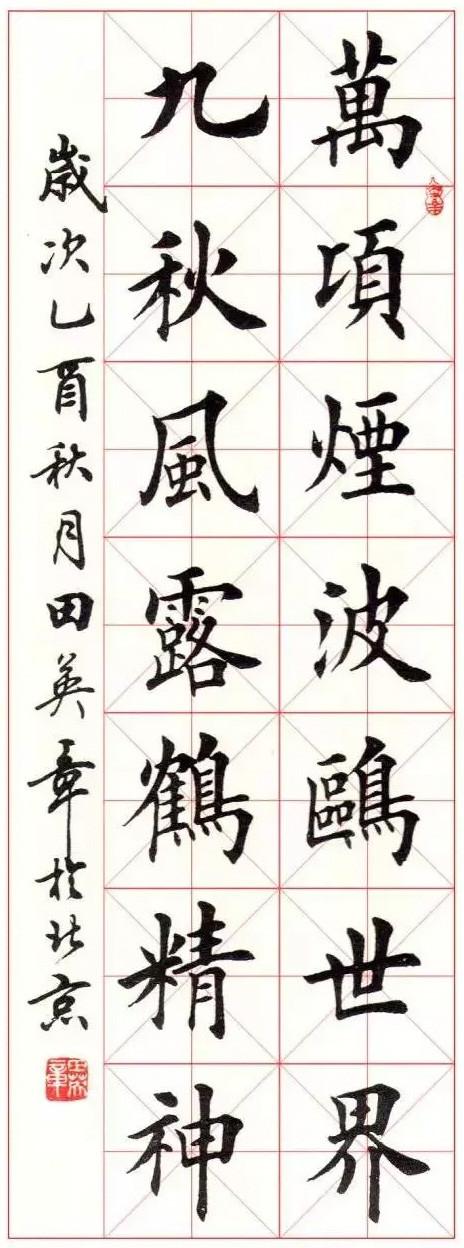 萬頃煙波鷗世界
九秋風露鶴精神
歲次乙酉秋月田英章於北京